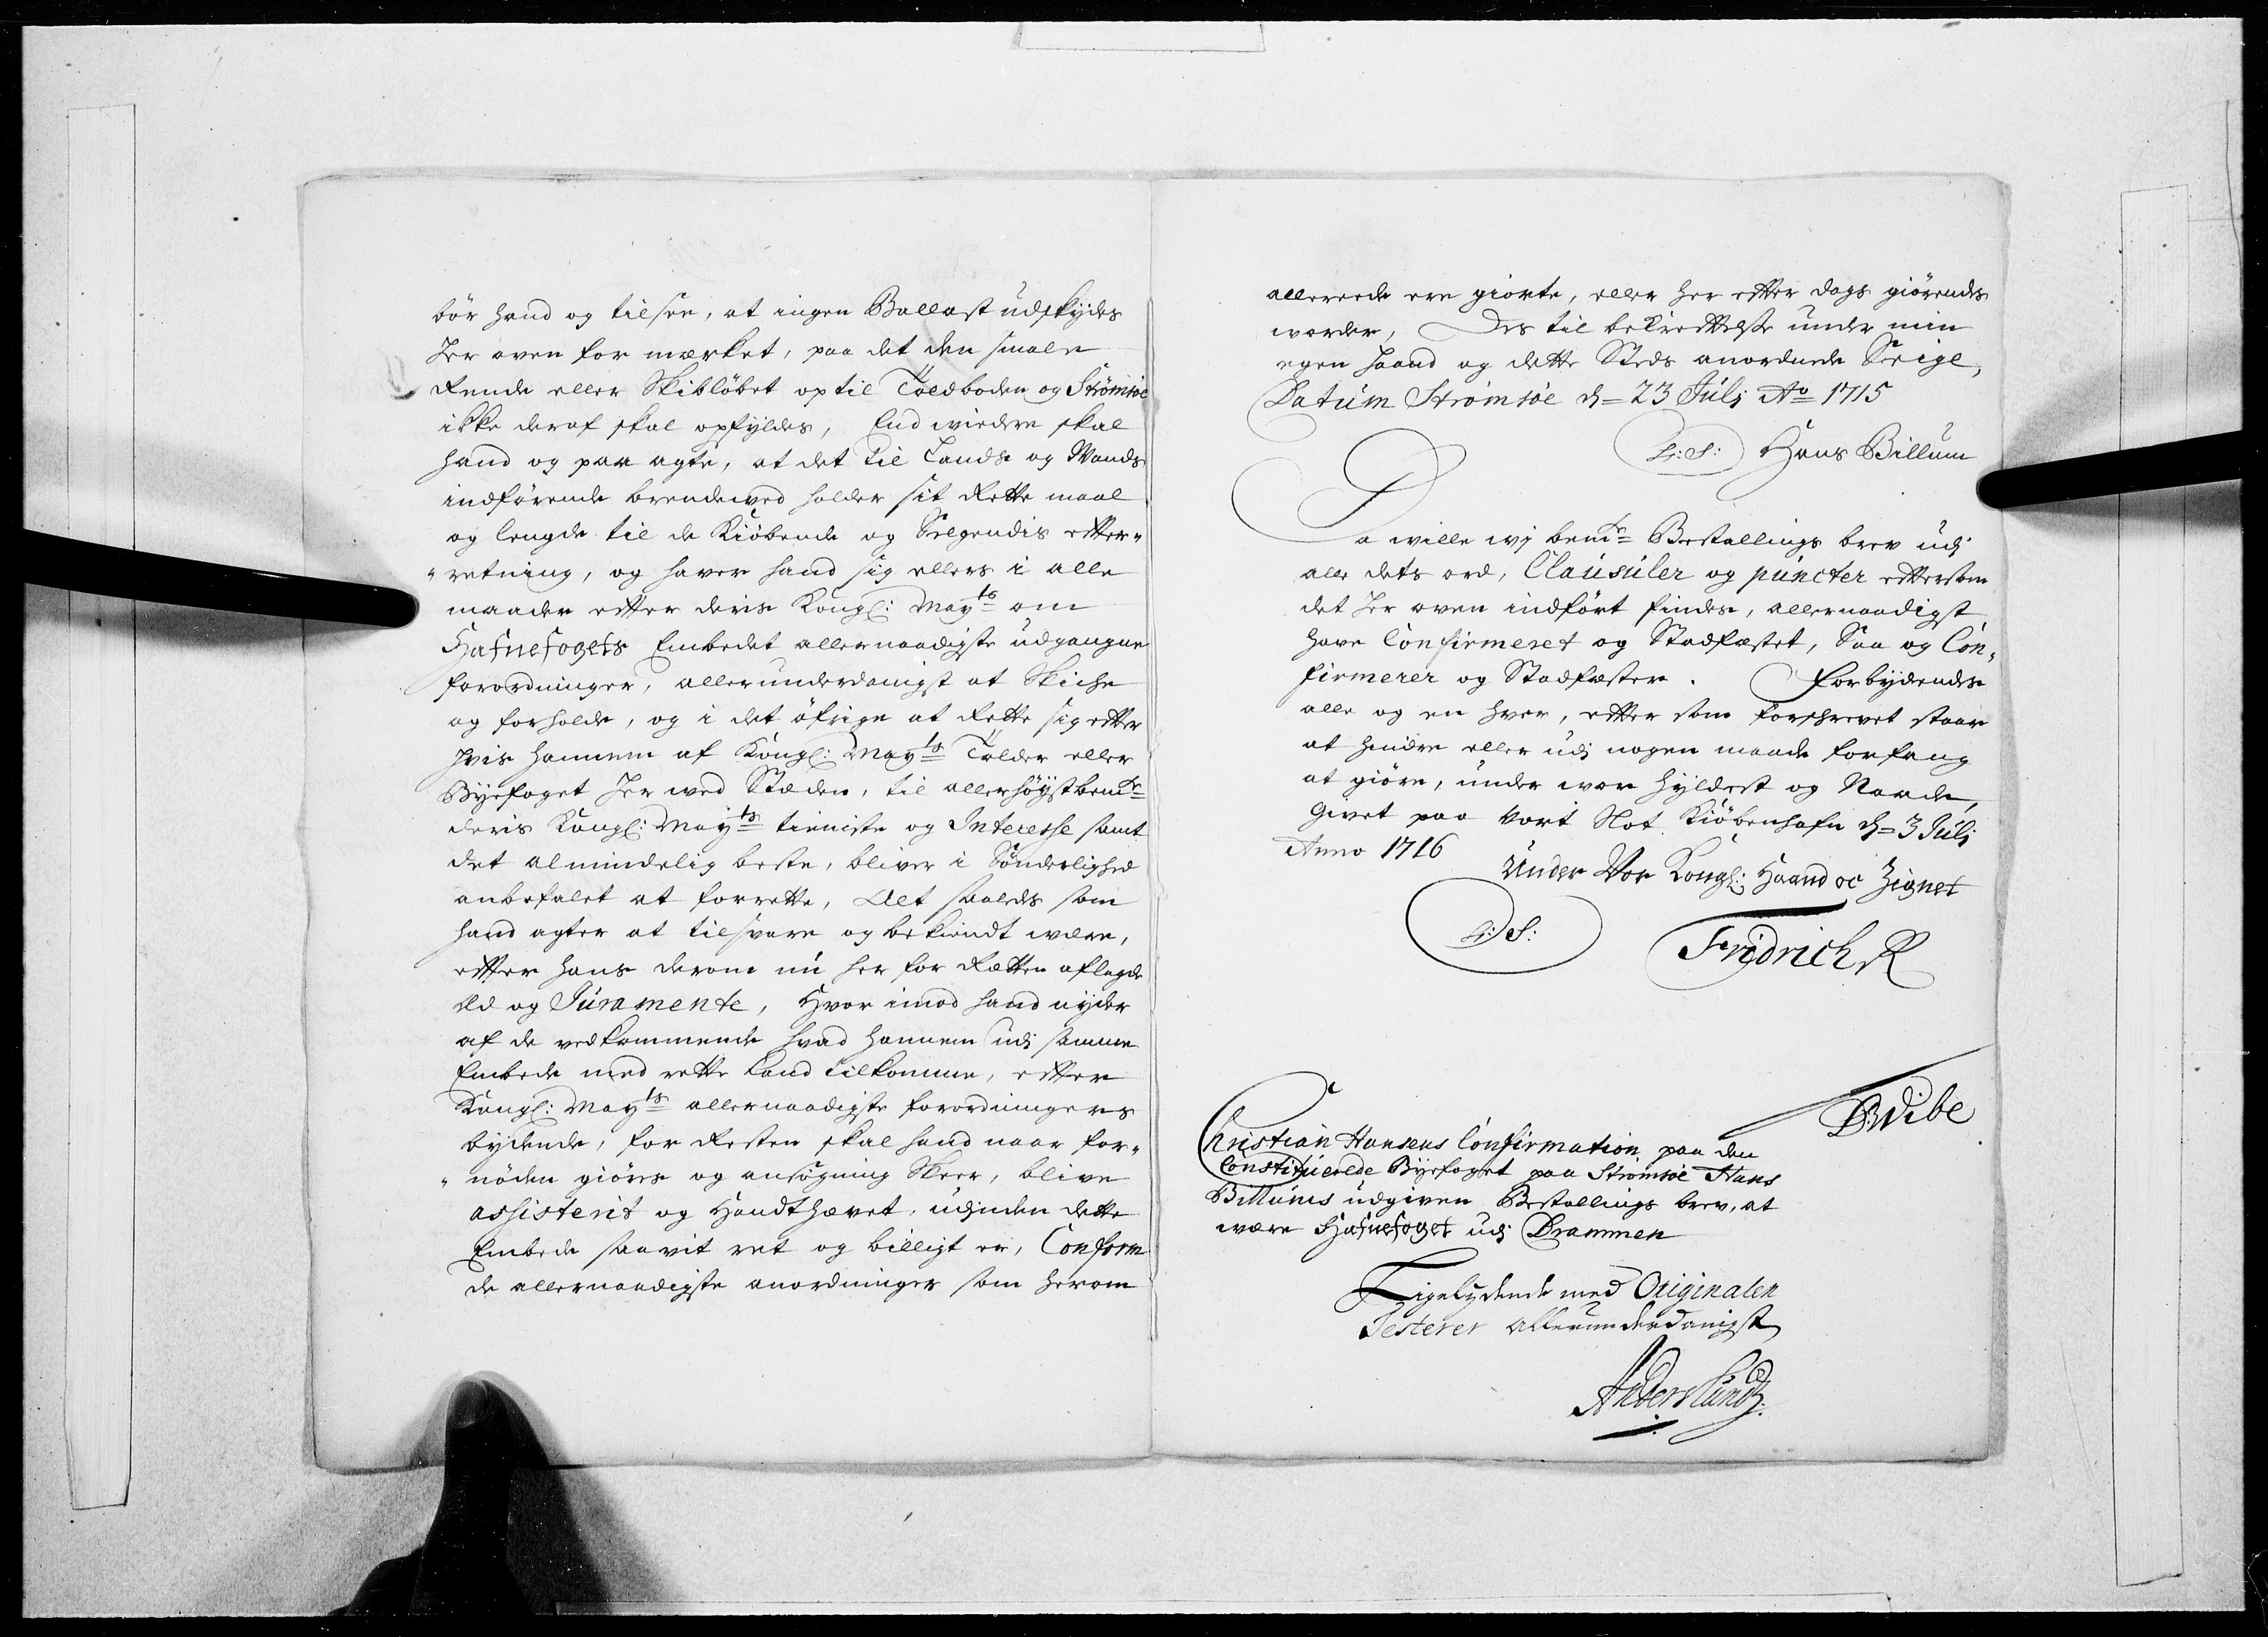 bör hand og tilsee, at ingen Ballast udskydes
Her oven for mærket, paa det den smale
Rende eller Skibløbet op til Toldboden og Strömsöe
ikke deraf skal opfyldes, End videre skal
hand og paa agte, at det til Lands og Wands
indförende brendeved holder sit Rette maal
og lengde til de Kiöbende og Selgendis effter„
„retning, og haver hand sig ellers i alle
maader effter deris Kongl: May.ts om
Hafnefogets Embedet allernaadigste udgangne
forordninger, allerunderdanigst at Skiche
og forholde, og i det öfrige at Rette sig effter
hvis hannem af Kongl: May.ts Tolder eller
Byefoget Her ved Stæden, til allerhöystbem.te
deris Kongl: May.ts tieniste og Interesse samt
det almindelig beste, bliver i Sönderlighed
anbefalet at forrette, Alt saaledes som
hand agter at tilsvare og bekiendt være,
effter hans derom nu her for Retten aflagde
Eed og Juramente, Hvor imod hand nyder
af de vedkommende hvad hannem udj samme
Embede med rette kand tilkomme, effter
Kongl: May.ts allernaadigste forordningers
bydende, for Resten skal hand naar for„
„nöden giöres og ansögning Skeer, blive
assisterit og Handthævet, udj dette
Embede saavit ret og billigt er, Conform
de allernaadigste anordninger som herom
allerede ere giorte, eller her effter dags giörendes
worder, Des til bekræfftelse under min
egen haand og dette Steds anordnede Seigl,
Datum Strömsöe d= 23 Julj Ao 1715
L:S: Hans Billum
Da wille wj bem.te Bestallings brev udj
alle dets ord, Clausuler og puncter effterson
det Her oven indfört findes, allernaadigst
have Confirmeret og Stadfæstet, Saa og Con„
firmerer og Stadfæster. Forbydendes
alle og en hver, effter som forschrevet staar
at hindre eller udj nogen maade forfang
at giöre, under vor Hyldest og Naade,
Givet paa vort Slot Kiöbenhafn d= 3 Julj
Anno 1716
Under Vor Kongl: Haand oc Zignet
L:S:
Fridrich R
Wibe
Christian Hansens Confirmation paa den
Constituerede Byefoget paa Strömsöe Hans
Billums udgiven Bestallings brev, at
være Hafnefoget udj Drammen
Ligelydende med Originalen
Testerer allerunderdanigst
Anders Lund